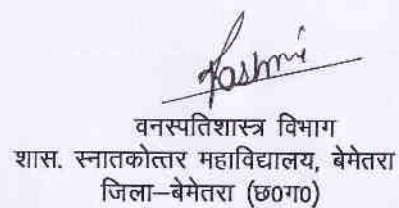 Rashmi
वनस्पतिशास्त्र विभाग
शास. स्नातकोत्तर महाविद्यालय, बेमेतरा
जिला–बेमेतरा (छ0ग0)